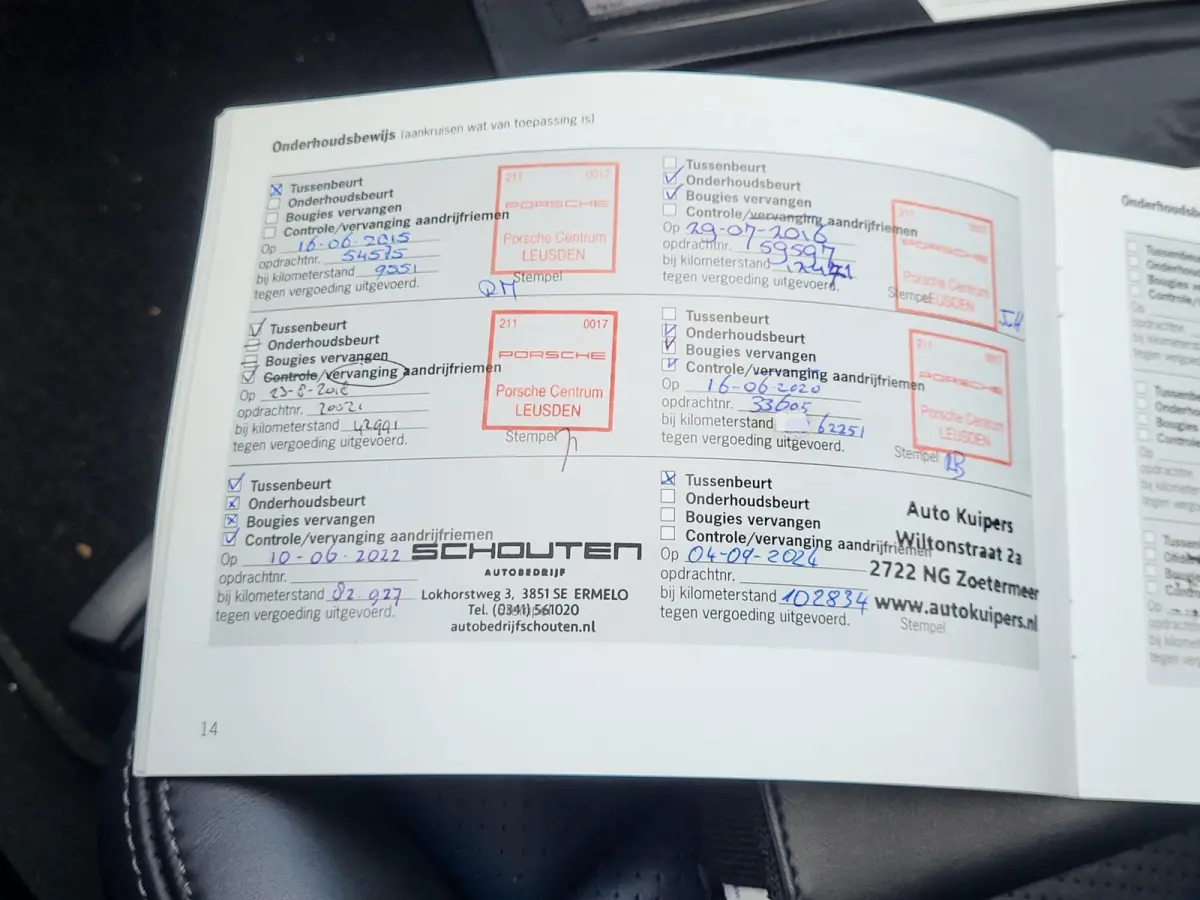 Onderhoudsbewijs (aankruisen wat van toepassing is)
Tussenbeurt
Onderhoudsbeurt
Bougies vervangen
Controle/vervanging aandrijfriemen
Op 16-06-2015
opdrachtnr. 54575
bij kilometerstand 9551
tegen vergoeding uitgevoerd.
211 0017
PORSCHE
Porsche Centrum
LEUSDEN
Stempel
Tussenbeurt
Onderhoudsbeurt
Bougies vervangen
Controle/vervanging aandrijfriemen
Op 29-07-2016
opdrachtnr. 159597
bij kilometerstand
tegen vergoeding uitgevoerd.
211 0017
PORSCHE
Porsche Centrum
LEUSDEN
Stempel
Tussenbeurt
Onderhoudsbeurt
Bougies vervangen
Controle/vervanging aandrijfriemen
Op 23-8-2018
opdrachtnr.
bij kilometerstand 42991
tegen vergoeding uitgevoerd.
211 0017
PORSCHE
Porsche Centrum
LEUSDEN
Stempel
Tussenbeurt
Onderhoudsbeurt
Bougies vervangen
Controle/vervanging aandrijfriemen
Op 16-06-2020
opdrachtnr. 33605
bij kilometerstand 62251
tegen vergoeding uitgevoerd.
211 0017
PORSCHE
Porsche Centrum
LEUSDEN
Stempel
Tussenbeurt
Onderhoudsbeurt
Bougies vervangen
Controle/vervanging aandrijfriemen
Op 10-06-2022
opdrachtnr.
bij kilometerstand 82.927
tegen vergoeding uitgevoerd.
SCHOUTEN
AUTOBEDRIJF
Lokhorstweg 3, 3851 SE ERMELO
Tel. (0341) 561020
autobedrijfschouten.nl
Tussenbeurt
Onderhoudsbeurt
Bougies vervangen
Controle/vervanging aandrijfriemen
Op 04-09-2024
opdrachtnr.
bij kilometerstand 102834
tegen vergoeding uitgevoerd.
Auto Kuipers
Wiltonstraat 2a
2722 NG Zoetermeer
www.autokuipers.nl
Stempel
14